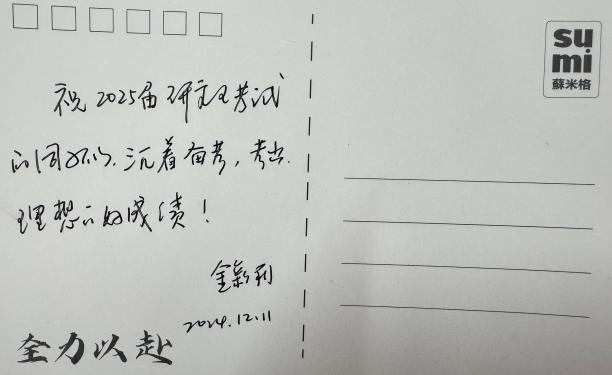 祝2025届研究生考试
的同学们，沉着备考，考出
理想的好成绩！
金新利
2024.12.11
全力以赴
su
mi
蘇米格